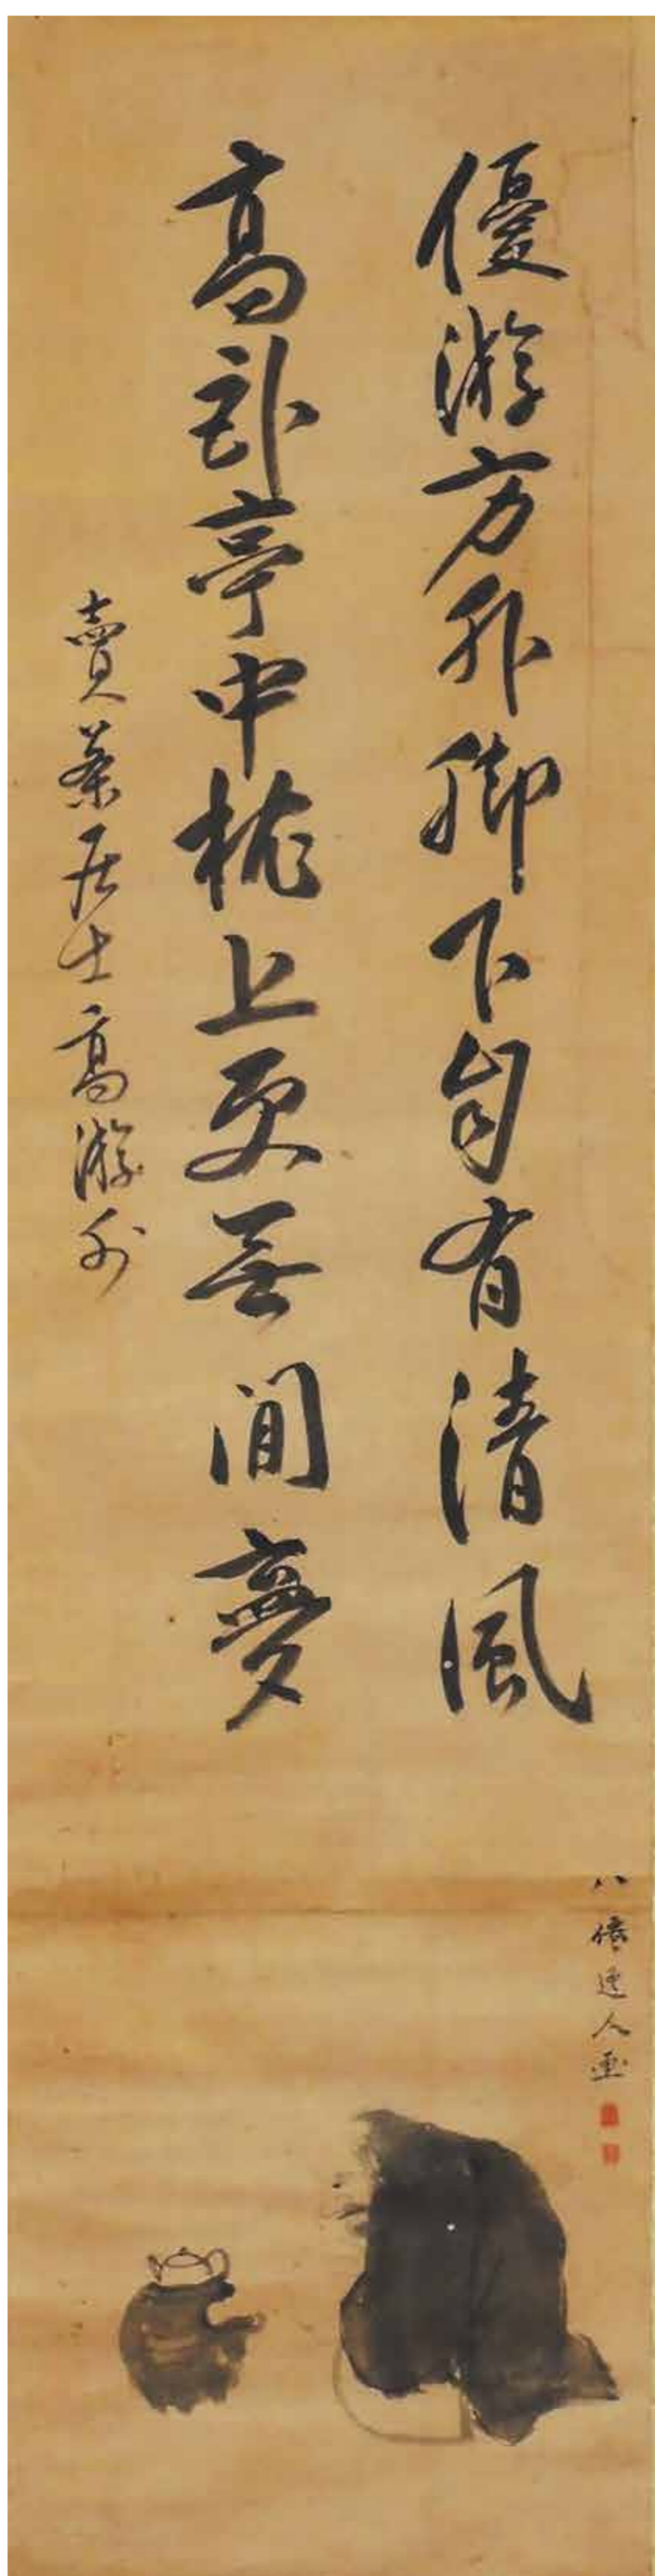 優游方外脚下自有清風
高臥亭中枕上更無間夢
賣茶居士高游外
八僊逸人画